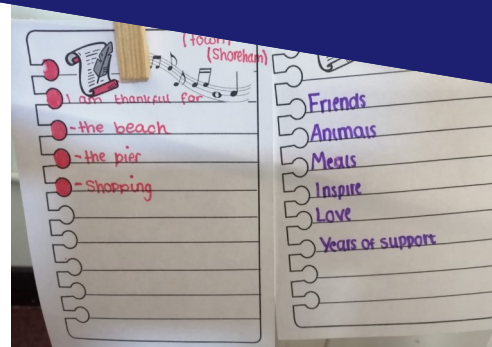 (town)
(Shoreham)
I am thankful for
-the beach
-the pier
-Shopping
Friends
Animals
Meals
Inspire
Love
Years of support